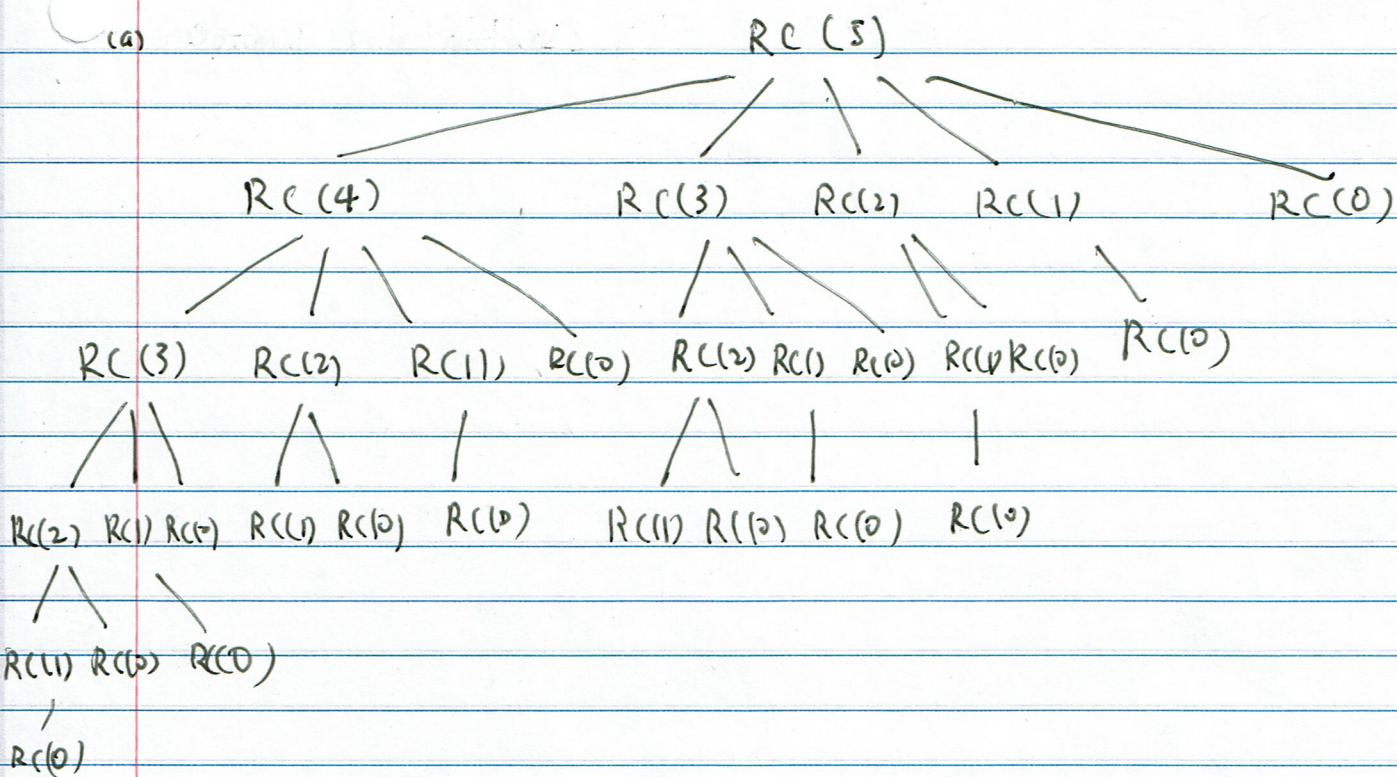 (a) RC (5)
RC (4) RC (3) RC(2) RC(1) RC(0)
RC (3) RC(2) RC(1) RC(0) RC(2) RC(1) RC(0) RC(1) RC(0) RC(0)
RC(2) RC(1) RC(0) RC(1) RC(0) RC(0) RC(1) RC(0) RC(0) RC(0)
RC(1) RC(0) RC(0)
RC(0)